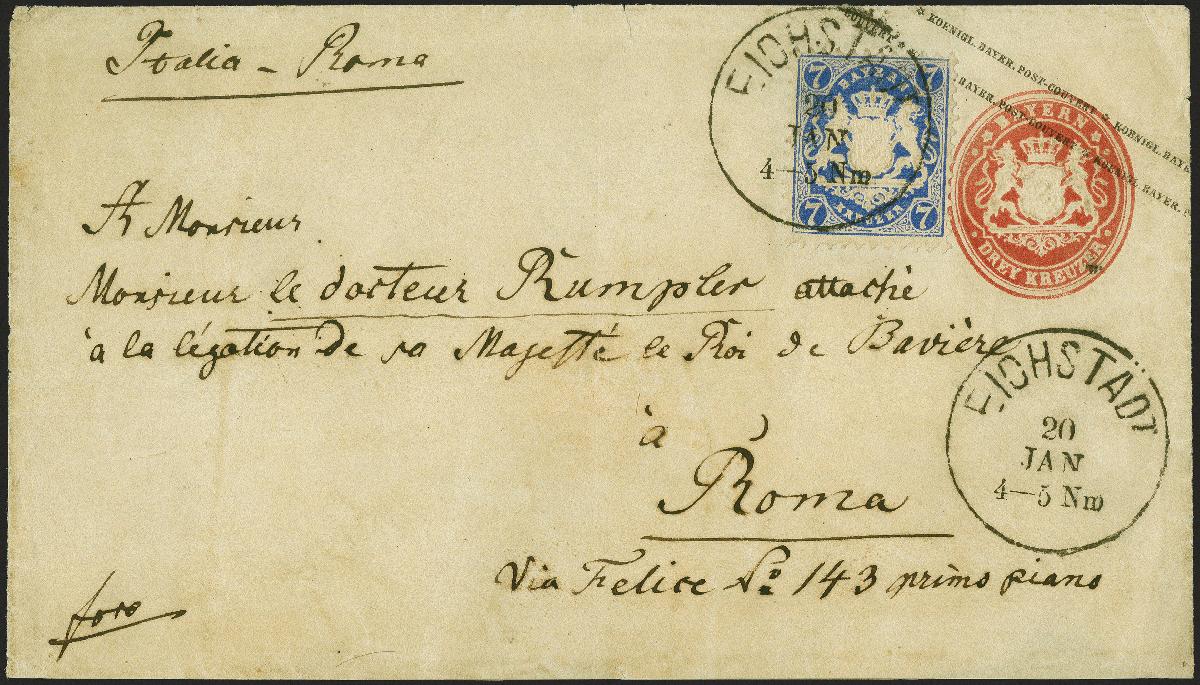 Italia - Roma
KOENIGL. BAYER. POST-COUVERT ☆ KOENIGL. BAYER
BAYER. POST-COUVERT ☆ KOENIGL. BAYER.
EICHSTÄDT
20
JAN
4—5 Nm
7 7
BAYERN
KREUZER
7 7
BAYERN
DREY KREUZER
A Monsieur
Monsieur le docteur Rumpler attaché
à la légation de sa Majesté le Roi de Bavière
à
Roma
Via Felice No. 143 primo piano
EICHSTÄDT
20
JAN
4—5 Nm